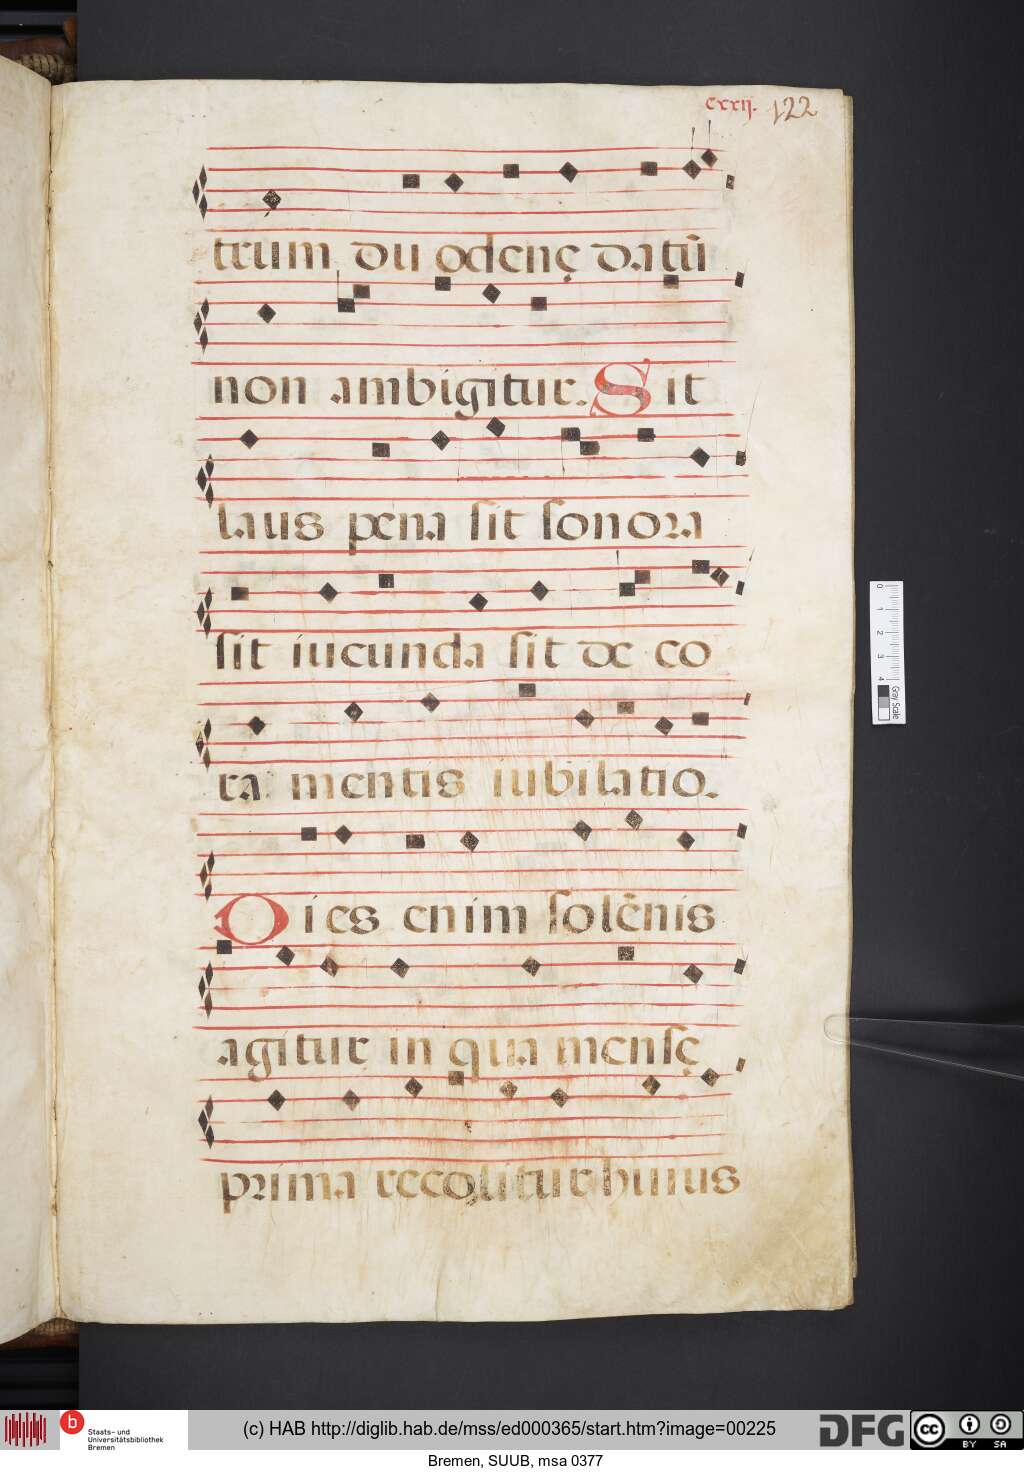 cxxij. 122
trum du odenę datū
non ambigitur. Sit
laus plena sit sonora
sit iucunda sit de co
ra mentis iubilatio.
Dies enim solēnis
agitur in qua mensę
prima recolitur huius
0 1 2 3 4 Gray Scale
b Staats- und Universitätsbibliothek Bremen
(c) HAB http://diglib.hab.de/mss/ed000365/start.htm?image=00225
DFG cc BY SA
Bremen, SUUB, msa 0377